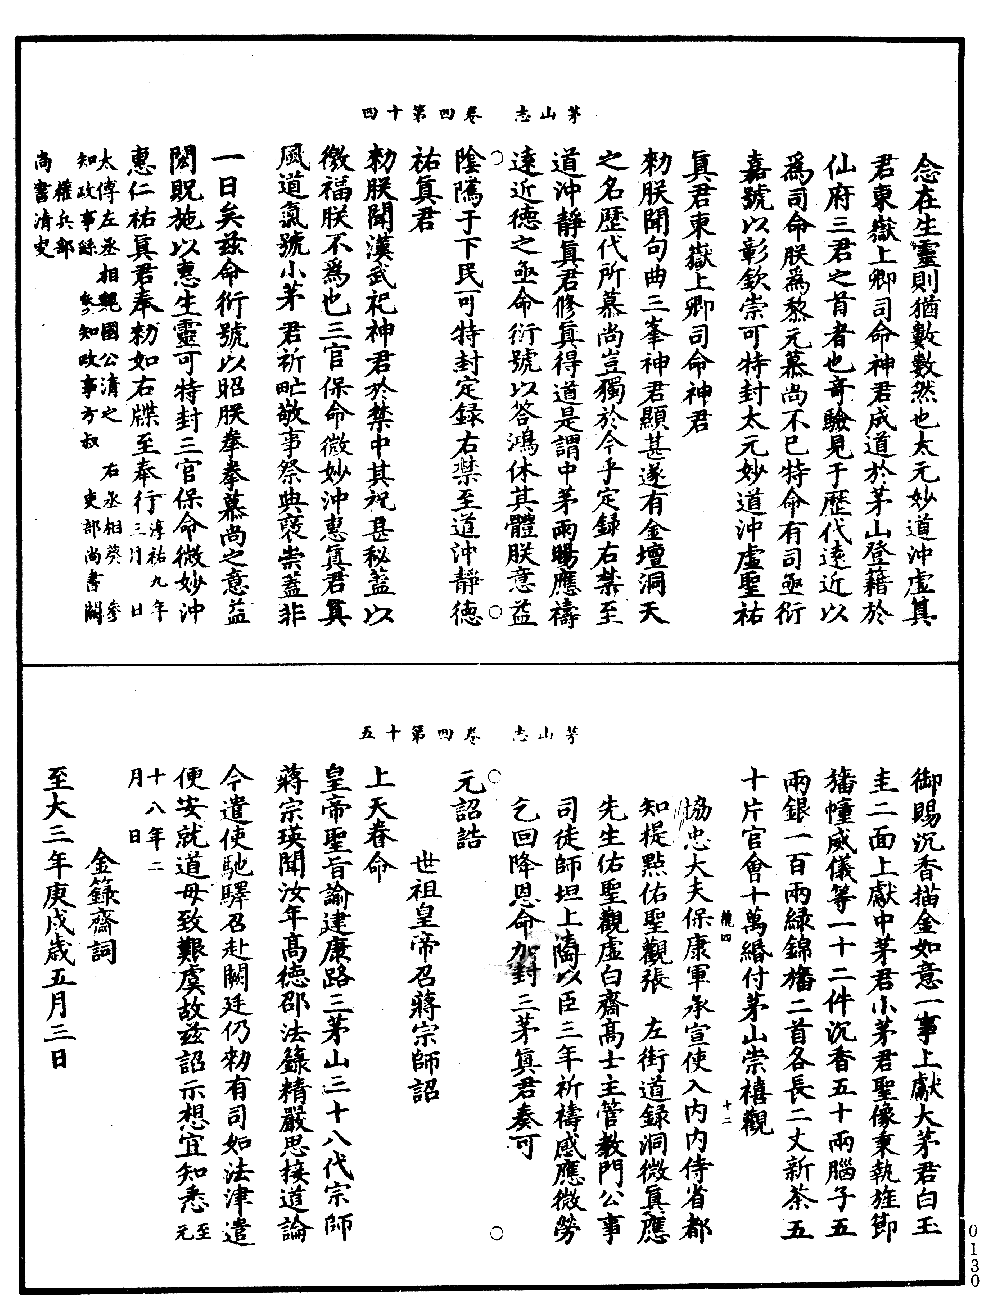 茅山志　卷四第十四
念在生靈則猶數數然也太元妙道沖虛真
君東嶽上卿司命神君成道於茅山登籍於
仙府三君之首者也奇驗見于歷代遠近以
爲司命朕爲黎元慕尚不已特命有司亟衍
嘉號以彰欽崇可特封太元妙道沖虛聖祐
真君東嶽上卿司命神君
勑朕聞句曲三峯神君顯甚遂有金壇洞天
之名歷代所慕尚豈獨於今乎定録右禁至
道沖靜真君修真得道是謂中茅雨暘應禱
遠近德之亟命衍號以答鴻休其體朕意益
陰隲于下民可特封定録右禁至道沖靜德
祐真君
勑朕聞漢武祀神君於禁中其祝甚秘蓋以
徼福朕不爲也三官保命微妙沖惠真君真
風道氣號小茅君祈甿敬事祭典褒崇蓋非
一日矣茲命衍號以昭朕拳拳慕尚之意益
閎貺施以惠生靈可特封三官保命微妙沖
惠仁祐真君奉勑如右牒至奉行淳祐九年三月　日
太傅左丞相魏國公清之　右丞相葵　參
知政事䌹　參知政事方叔　吏部尚書闕
權兵部
尚書清叟
茅山志　卷四第十五
御賜沉香描金如意一事上獻大茅君白玉
圭二面上獻中茅君小茅君聖像秉執旌節
旛幢威儀等一十二件沉香五十兩腦子五
兩銀一百兩綠錦旛二首各長二丈新茶五
十片官會十萬緡付茅山崇禧觀
龍四　十二
協忠大夫保康軍承宣使入內內侍省都
知提點佑聖觀張　左街道録洞微真應
先生佑聖觀虛白齋高士主管教門公事
司徒師坦上濤以臣三年祈禱感應微勞
乞回降恩命加封三茅真君奏可
元詔誥
世祖皇帝召蔣宗師詔
上天眷命
皇帝聖旨諭建康路三茅山三十八代宗師
蔣宗瑛聞汝年高德邵法籙精嚴思接道論
今遣使馳驛召赴闕廷仍勑有司如法津遣
便安就道毋致艱虞故茲詔示想宜知悉至元
十八年二
月　日
金籙齋詞
至大三年庚戌歲五月三日
0130